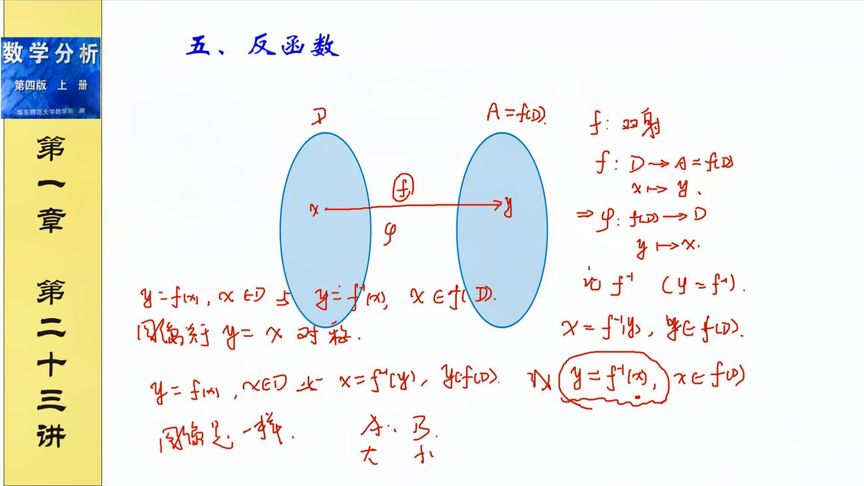 五、反函数
数学分析
第四版 上 册
华东师范大学数学系 编
第一章 第二十三讲
D
A=f(D).
f
x
y
φ
f: 双射
f: D→A=f(D)
x↦y.
⇒φ: f(D)→D
y↦x.
记 f⁻¹ (φ=f⁻¹).
x=f⁻¹(y), y∈f(D).
y=f⁻¹(x), x∈f(D)
y=f(x), x∈D 与 y=f⁻¹(x), x∈f(D).
图像关于 y=x 对称.
y=f(x), x∈D 与 x=f⁻¹(y), y∈f(D).
图像是一样.
A: B.
大 小